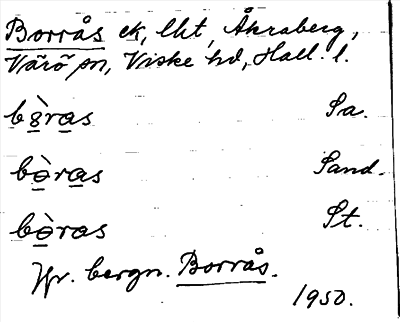 Borrås ek, lht, Åkraberg,
Värö sn, Viske hd, Hall. l.
bòras Sa.
bòras Sand.
bòras St.
Jfr. bergn. Borrås.
1950.